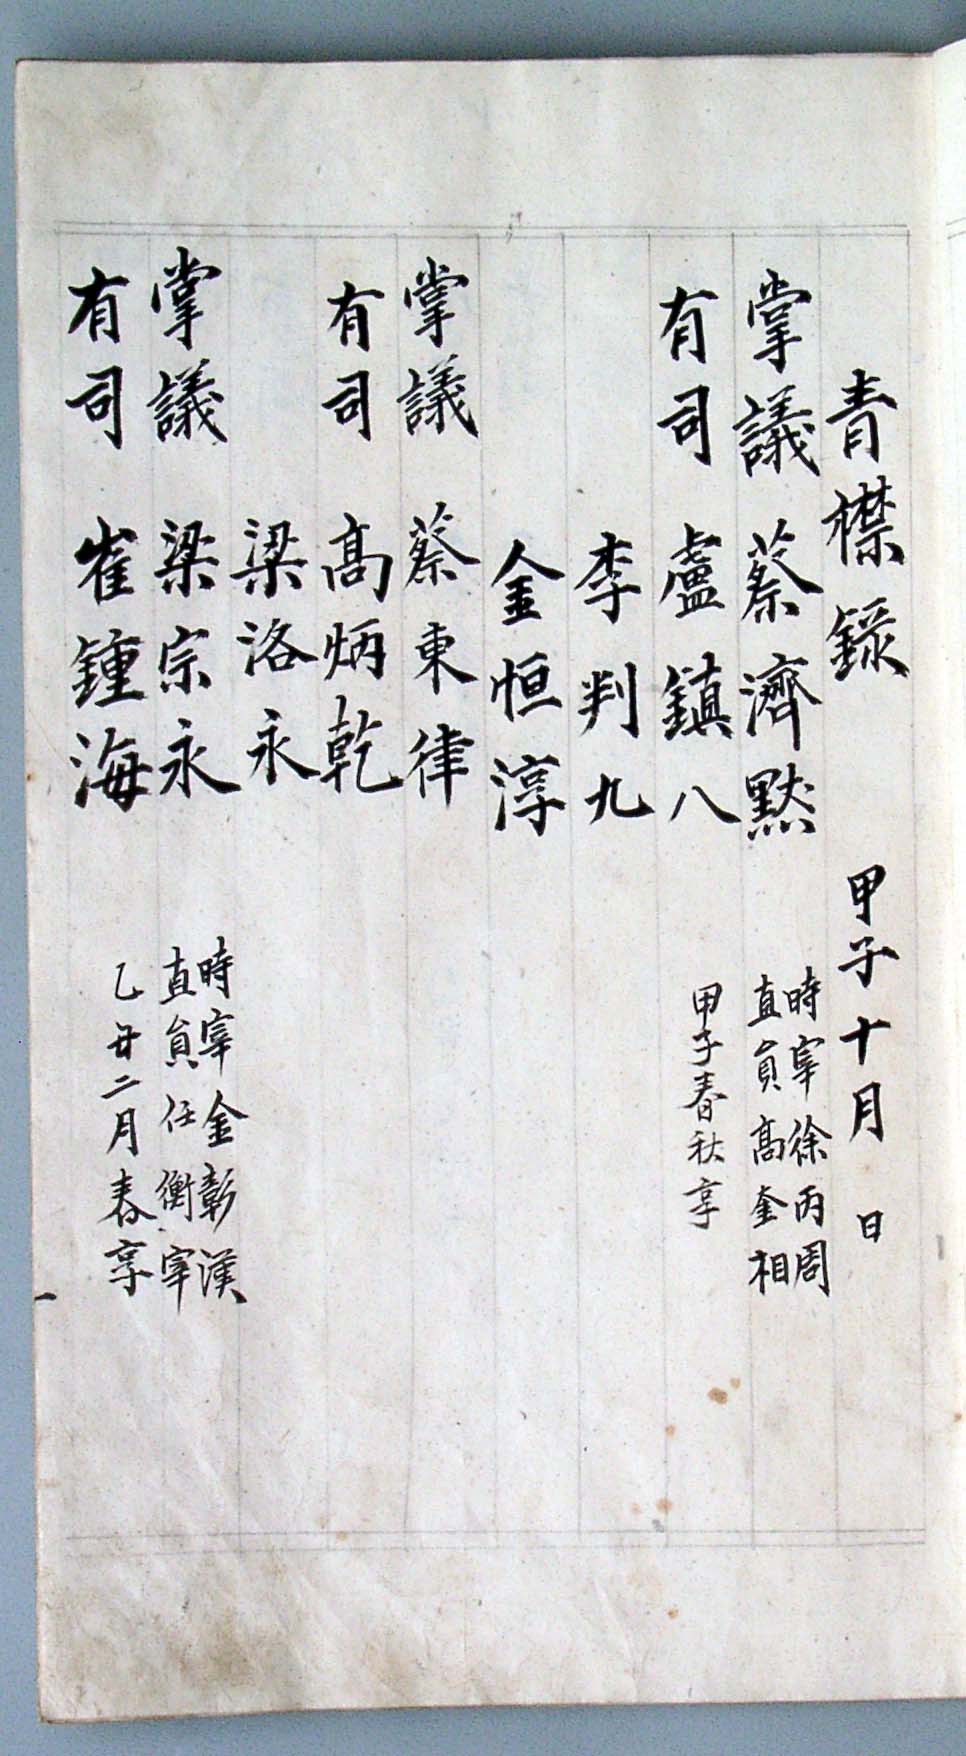 青襟錄 甲子十月 日
掌議 蔡濟黙 時宰徐丙周
直員高奎相
有司 盧鎮八 甲子春秋享
李判九
金恒淳
掌議 蔡東律
有司 高炳乾
梁洛永
掌議 梁宗永 時宰金彰漢
直員任衡宰
有司 崔鍾海 乙丑二月春享